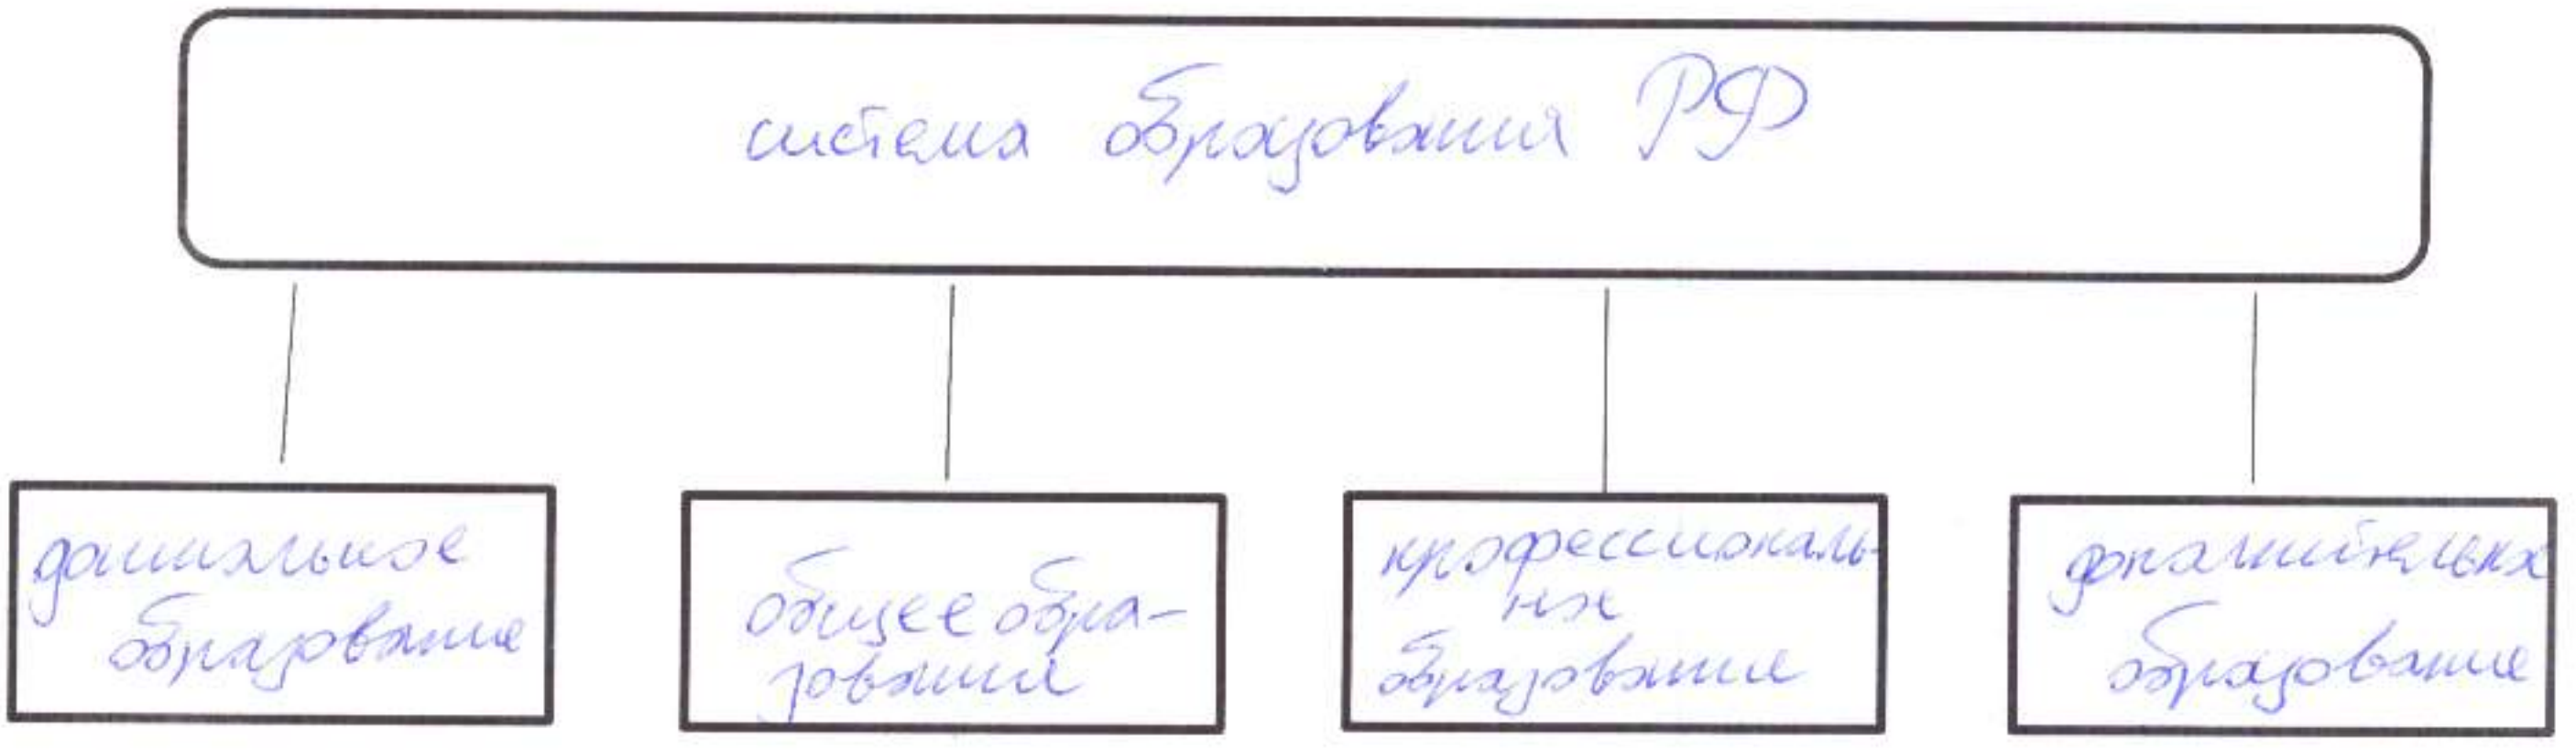 система образования РФ
дошкольное
образование
общее обра-
зование
профессиональ-
ное
образование
дополнительно
образование